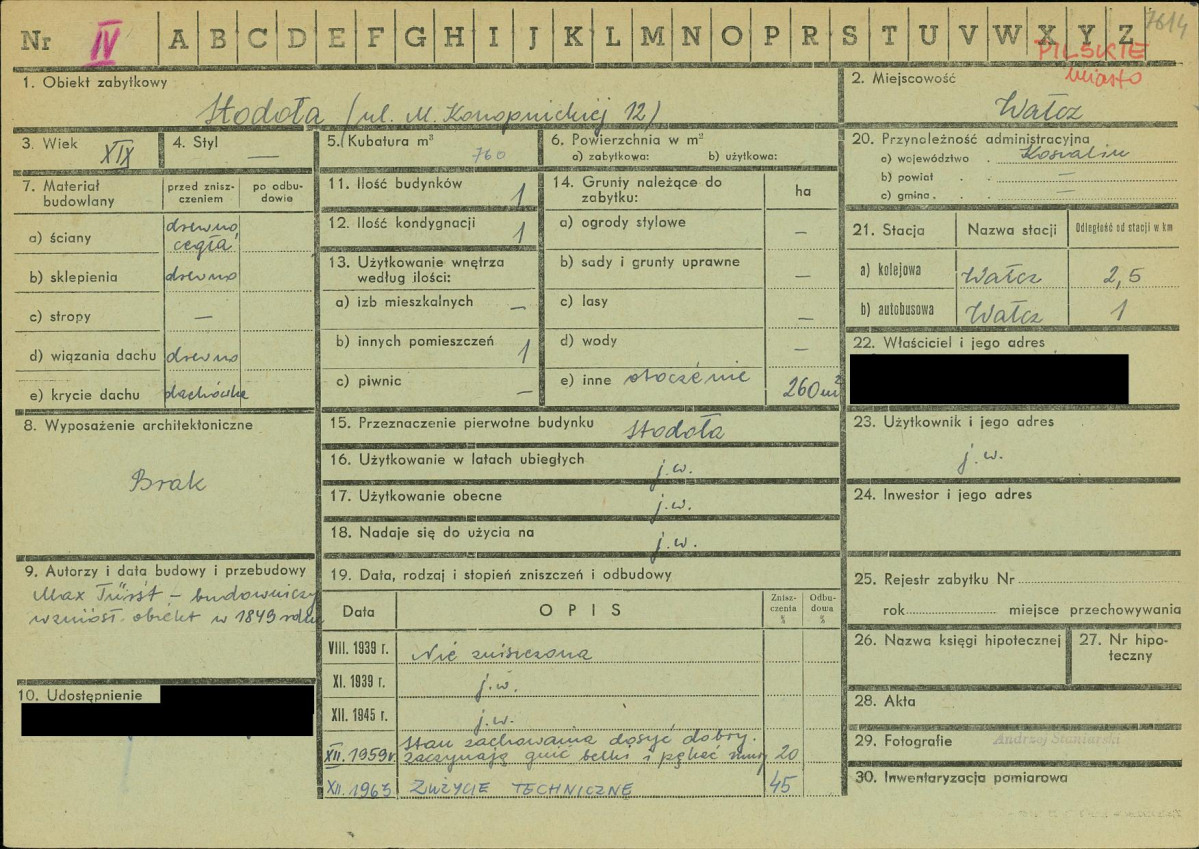 Nr IV A B C D E F G H I J K L M N O P R S T U V W X Y Z 7614
PILSKIE
miasto
1. Obiekt zabytkowy
Stodoła (ul. M. Konopnickiej 12)
2. Miejscowość
Wałcz
3. Wiek XIX
4. Styl —
5. Kubatura m³
760
6. Powierzchnia w m²
a) zabytkowa: b) użytkowa:
7. Materiał budowlany
przed zniszczeniem
po odbudowie
a) ściany drewno, cegła
b) sklepienia drewno
c) stropy —
d) wiązania dachu drewno
e) krycie dachu dachówka
8. Wyposażenie architektoniczne
Brak
9. Autorzy i data budowy i przebudowy
Max Türst – budowniczy
wzniósł obiekt w 1849 roku
10. Udostępnienie
11. Ilość budynków 1
12. Ilość kondygnacji 1
13. Użytkowanie wnętrza
według ilości:
a) izb mieszkalnych —
b) innych pomieszczeń 1
c) piwnic —
14. Grunty należące do
zabytku:
ha
a) ogrody stylowe —
b) sady i grunty uprawne —
c) lasy —
d) wody —
e) inne otoczenie 260 m²
15. Przeznaczenie pierwotne budynku stodoła
16. Użytkowanie w latach ubiegłych j.w.
17. Użytkowanie obecne j.w.
18. Nadaje się do użycia na j.w.
19. Data, rodzaj i stopień zniszczeń i odbudowy
Data OPIS Zniszczenia % Odbudowa %
VIII. 1939 r. Nie zniszczona
XI. 1939 r. j.w.
XII. 1945 r. j.w.
XII. 1959 r. Stan zachowania dosyć dobry.
zaczynają gnić belki i pękać mury 20
XII. 1963 ZUŻYCIE TECHNICZNE 45
20. Przynależność administracyjna
a) województwo . Koszalin
b) powiat . —
c) gmina . —
21. Stacja Nazwa stacji Odległość od stacji w km
a) kolejowa Wałcz 2,5
b) autobusowa Wałcz 1
22. Właściciel i jego adres
23. Użytkownik i jego adres
j.w.
24. Inwestor i jego adres
25. Rejestr zabytku Nr
rok miejsce przechowywania
26. Nazwa księgi hipotecznej
27. Nr hipoteczny
28. Akta
29. Fotografie Andrzej Stachurski
30. Inwentaryzacja pomiarowa